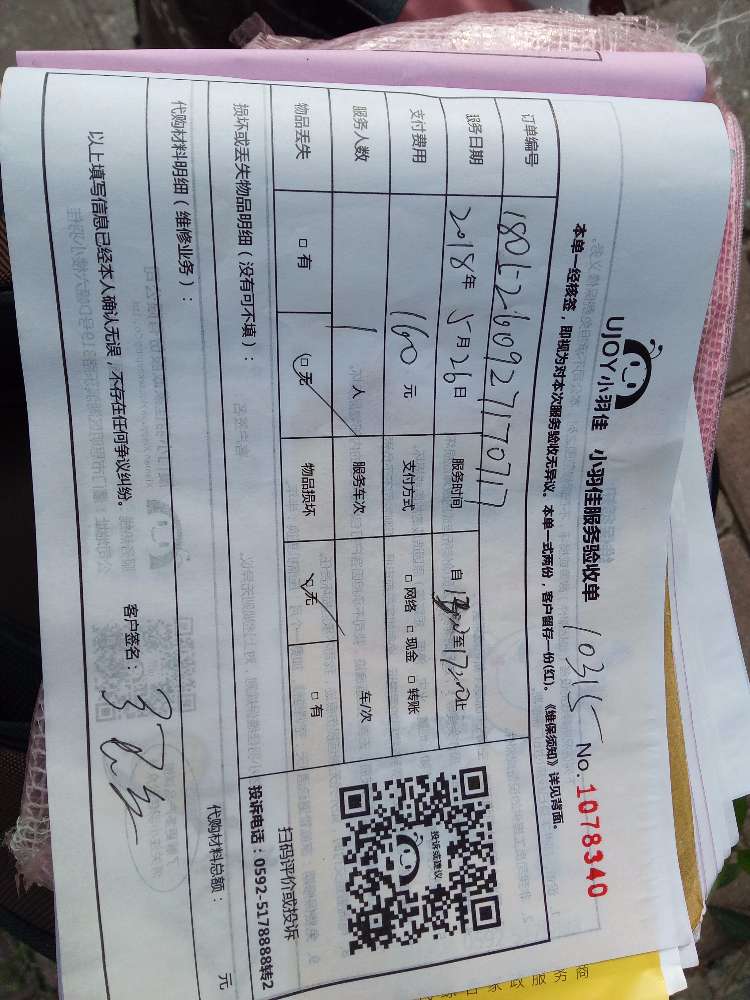 UJOY小羽佳 小羽佳服务验收单 10315 No.1078340
本单一经核签，即视为对本次服务验收无异议。本单一式两份，客户留存一份(红)。《维保须知》详见背面。
订单编号
服务日期 2018年5月26日 服务时间 自 至17:00止
支付费用 160元 支付方式 □网络 □现金 □转账
服务人数 1人 服务车次 车/次
物品丢失 □有 □无 物品损坏 □无 □有
损坏或丢失物品明细（没有可不填）：
投诉或建议
扫码评价或投诉
投诉电话：0592-5178888转2
代购材料明细（维修业务）： 代购材料总额： 元
以上填写信息已经本人确认无误，不存在任何争议纠纷。 客户签名：
家政服务商